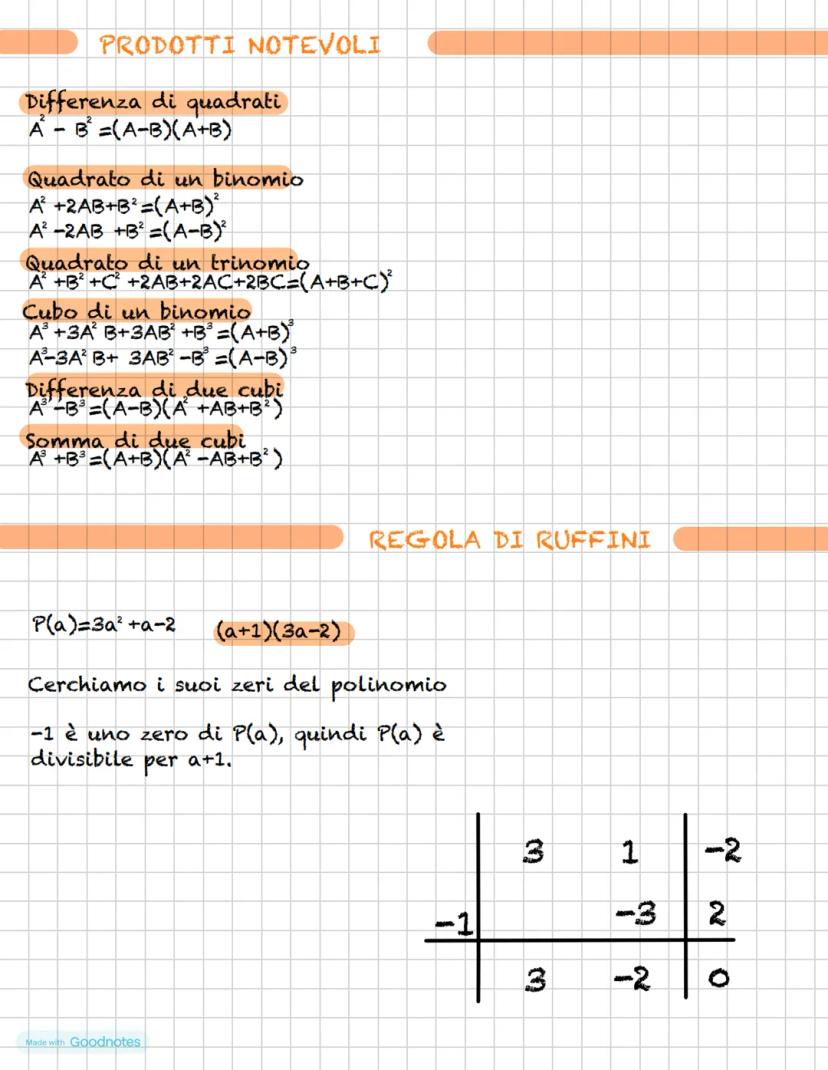 PRODOTTI NOTEVOLI
Differenza di quadrati
A² - B² =(A-B)(A+B)
Quadrato di un binomio
A² +2AB+B² =(A+B)²
A² -2AB +B² =(A-B)²
Quadrato di un trinomio
A² +B² +C² +2AB+2AC+2BC=(A+B+C)²
Cubo di un binomio
A³ +3A² B+3AB² +B³ =(A+B)³
A³-3A² B+ 3AB² -B³ =(A-B)³
Differenza di due cubi
A³ -B³ =(A-B)(A² +AB+B² )
Somma di due cubi
A³ +B³ =(A+B)(A² -AB+B² )
REGOLA DI RUFFINI
P(a)=3a² +a-2 (a+1)(3a-2)
Cerchiamo i suoi zeri del polinomio
-1 è uno zero di P(a), quindi P(a) è
divisibile per a+1.
3 1 -2
-1 -3 2
3 -2 0
Made with Goodnotes